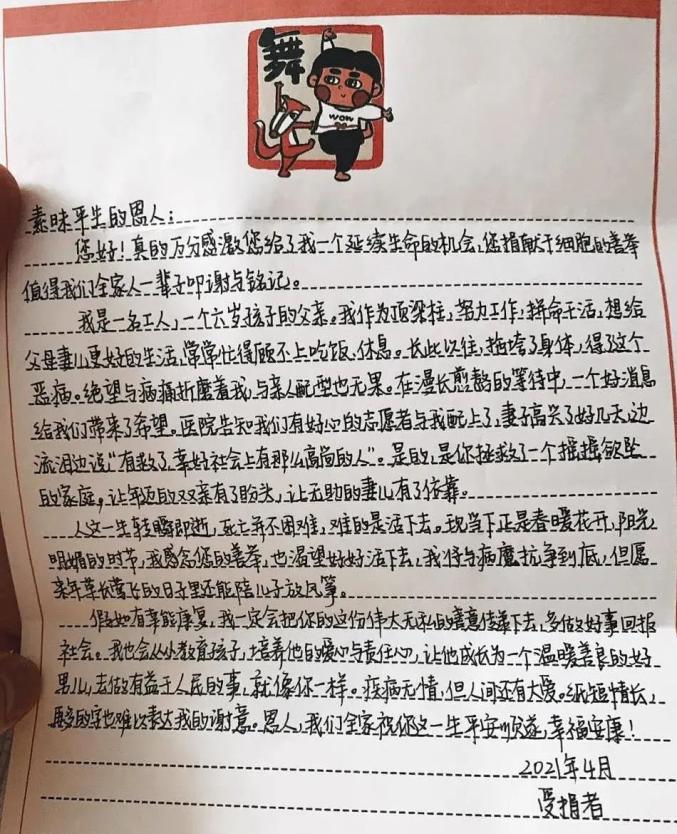 舞
wow
素昧平生的恩人：
您好！真的万分感激您给了我一个延续生命的机会，您捐献干细胞的善举
值得我们全家人一辈子叩谢与铭记。
我是一名工人，一个六岁孩子的父亲。我作为顶梁柱，努力工作，拼命干活，想给
父母妻儿更好的生活，常常忙得顾不上吃饭、休息。长此以往，拖垮了身体，得了这个
恶病。绝望与病痛折磨着我，与亲人配型也无果。在漫长煎熬的等待中，一个好消息
给我们带来了希望。医院告知我们有好心的志愿者与我配上了，妻子高兴了好几天，边
流泪边说“有救了，幸好社会上有那么高尚的人”。是的，是你拯救了一个摇摇欲坠
的家庭，让年迈的双亲有了盼头，让无助的妻儿有了依靠。
人这一生转瞬即逝，死亡并不困难，难的是活下去。现当下正是春暖花开，阳光
明媚的时节，我感念您的善举，也渴望好好活下去，我将与病魔抗争到底，但愿
来年草长莺飞的日子里还能陪儿子放风筝。
假如有幸能康复，我一定会把你的这份伟大无私的善意传递下去，多做好事回报
社会。我也会从小教育孩子，培养他的爱心与责任心，让他成长为一个温暖善良的好
男儿，去做有益于人民的事，就像你一样。疾病无情，但人间还有大爱。纸短情长，
再多的字也难以表达我的谢意。恩人，我们全家祝你这一生平安顺遂，幸福安康！
2021年4月
受捐者